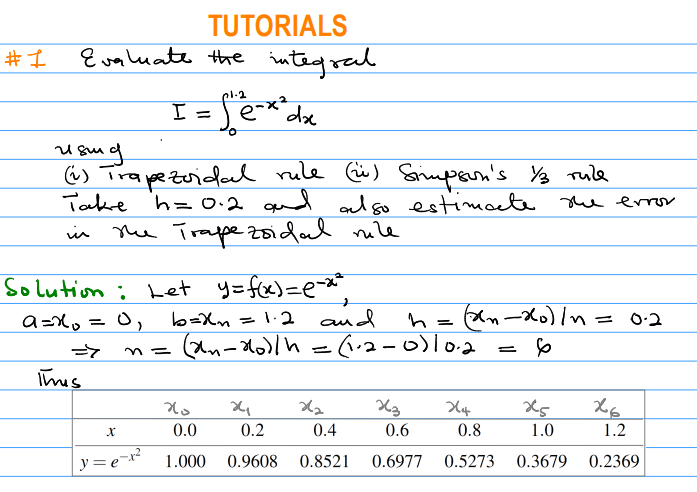 TUTORIALS
#1 Evaluate the integral
I = ∫₀^1.2 e^-x² dx
using
(i) Trapezoidal rule (ii) Simpson's 1/3 rule
Take h = 0.2 and also estimate the error
in the Trapezoidal rule
Solution : Let y=f(x)=e^-x²,
a=x₀ = 0, b=xₙ = 1.2 and h = (xₙ-x₀)/n = 0.2
⇒ n = (xₙ-x₀)/h = (1.2-0)/0.2 = 6
Thus
x₀ x₁ x₂ x₃ x₄ x₅ x₆
x 0.0 0.2 0.4 0.6 0.8 1.0 1.2
y = e^-x² 1.000 0.9608 0.8521 0.6977 0.5273 0.3679 0.2369